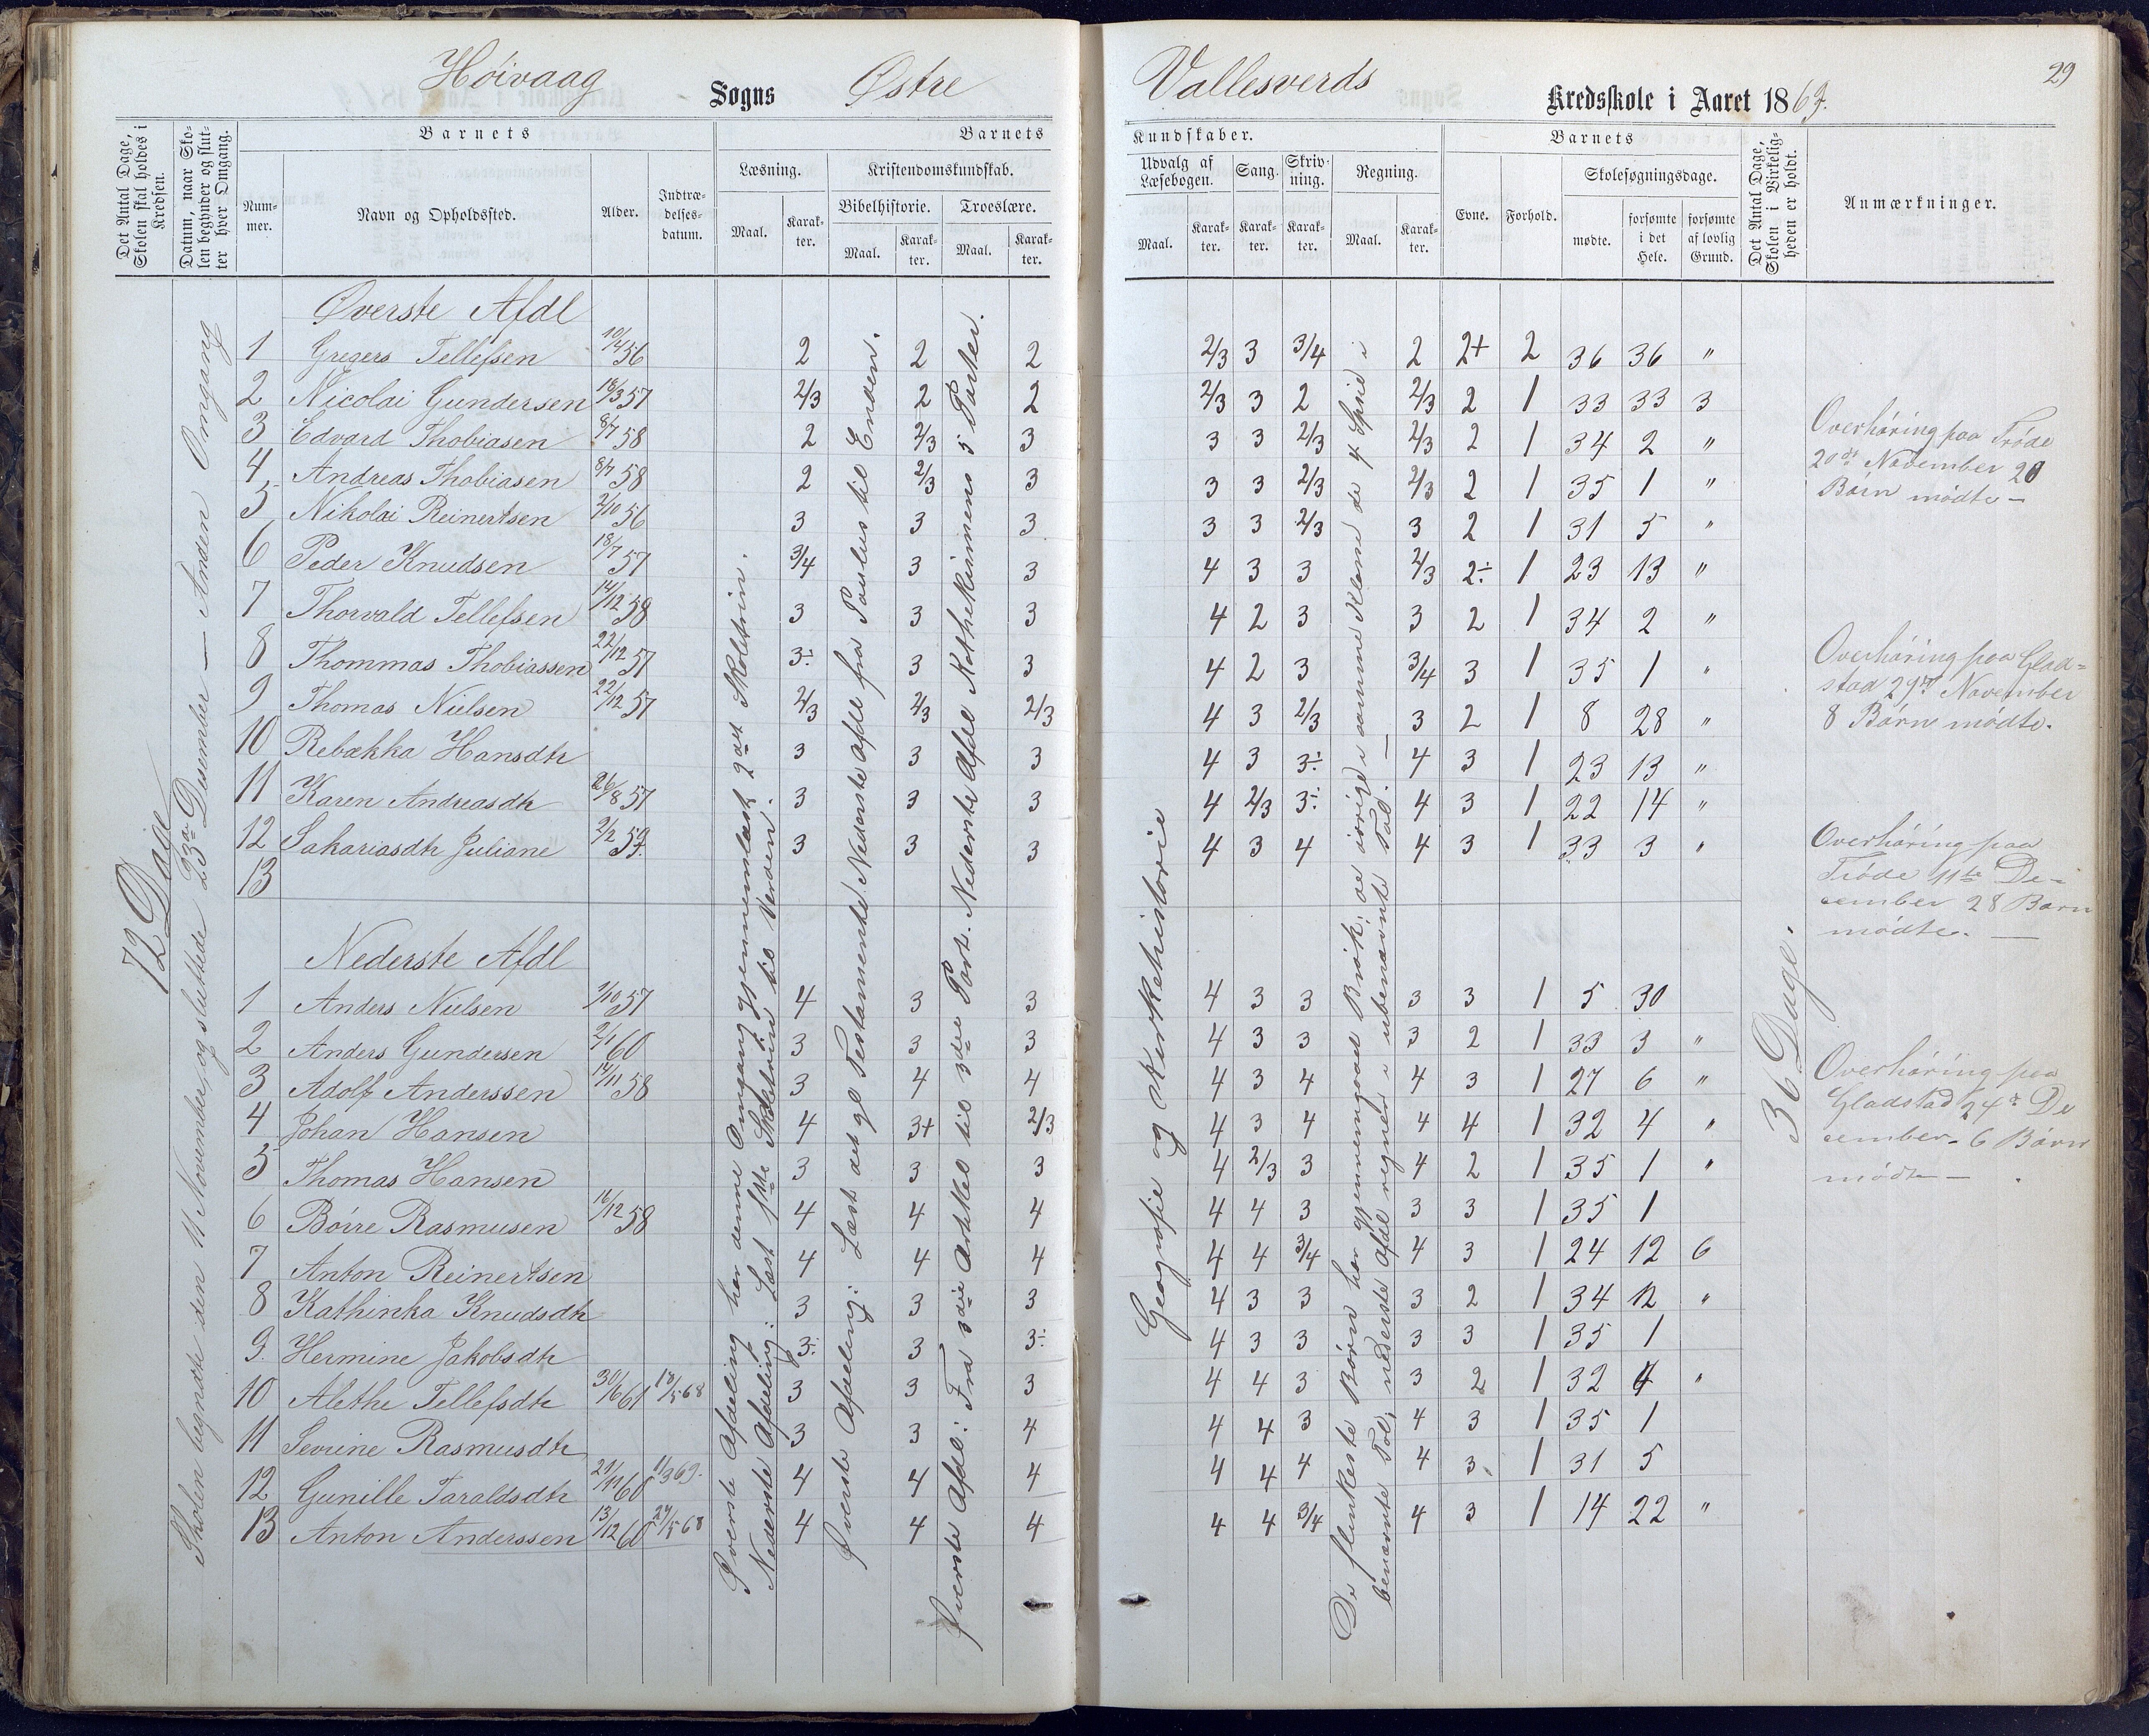 29
Høivaag Sogns Østre Vallesverds Kredsskole i Aaret 1869.
Det Antal Dage, Skolen skal holdes i Kredsen.
Datum, naar Skolen begynder og slutter hver Omgang.
Barnets
Nummer.
Navn og Opholdssted.
Alder.
Indtrædelsesdatum.
Barnets Kundskaber.
Læsning.
Maal.
Karakter.
Kristendomskundskab.
Bibelhistorie.
Maal.
Karakter.
Troeslære.
Maal.
Karakter.
Udvalg af Læsebogen.
Maal.
Karakter.
Sang.
Karakter.
Skrivning.
Karakter.
Regning.
Maal.
Karakter.
Barnets
Evne.
Forhold.
Skolesøgningsdage.
mødte.
forsømte i det Hele.
forsømte af lovlig Grund.
Det Antal Dage, Skolen i Virkeligheden er holdt.
Anmærkninger.
72 Dage
Skolen begyndte den 11 November, og sluttede 23de Desember — Anden Omgang
Øverste Afdl
1 Gregers Tellefsen 10/4 56 2 2 2 2/3 3 3/4 2 2+ 2 36 36 "
2 Nicolai Gundersen 18/3 57 2/3 2 2 2/3 3 2 2/3 2 1 33 33 3
3 Edvard Thobiasen 8/7 58 2 2/3 3 3 3 2/3 2/3 2 1 34 2 "
4 Andreas Thobiasen 8/7 58 2 2/3 3 3 3 2/3 2/3 2 1 35 1 "
5 Nikolai Reinertsen 2/10 56 3 3 3 3 3 2/3 3 2 1 31 5 "
6 Peder Knudsen 18/7 57 3/4 3 3 4 3 3 2/3 2÷ 1 23 13 "
7 Thorvald Tellefsen 14/12 58 3 3 3 4 2 3 3 2 1 34 2 "
8 Thommas Thobiassen 22/12 57 3÷ 3 3 4 2 3 3/4 3 1 35 1 "
9 Thomas Nielsen 22/12 57 2/3 2/3 2/3 4 3 2/3 3 2 1 8 28 "
10 Rebækka Hansdtr 3 3 3 4 3 3÷ 4 3 1 23 13 "
11 Karen Andreasdtr 26/8 57 3 3 3 4 2/3 3÷ 4 3 1 22 14 "
12 Sakariasdtr Juliane 2/2 59. 3 3 3 4 3 4 4 3 1 33 3 "
13
Nederste Afdl
1 Anders Nielsen 1/10 57 4 3 3 4 3 3 3 3 1 5 30
2 Anders Gundersen 2/1 60 3 3 3 4 3 3 3 2 1 33 3 "
3 Adolf Anderssen 14/11 58 3 4 4 4 3 4 4 3 1 27 6 "
4 Johan Hansen 4 3+ 2/3 4 3 4 4 4 1 32 4 "
5 Thomas Hansen 3 3 3 4 2/3 3 4 2 1 35 1 "
6 Börre Rasmusen 16/12 58 4 4 4 4 4 3 3 3 1 35 1
7 Anton Reinertsen 4 4 4 4 4 3/4 4 3 1 24 12 6
8 Kathinka Knudsdtr 3 3 3 4 3 3 3 2 1 34 12 "
9. Hermine Jakobsdtr 3÷ 3 3÷ 4 3 3 3 3 1 35 1
10 Alethe Tellefsdtr 30/6 61 18/5 68 3 3 3 4 4 3 3 2 1 32 4 "
11 Sevrine Rasmusdtr 3 3 4 4 4 3 4 3 1 35 1
12 Gunille Taraldsdtr 21/11 60 11/3 69. 4 4 4 4 4 4 4 3. 1 31 5
13 Anton Anderssen 13/12 60 24/5 68 4 4 4 4 4 3/4 4 3 1 14 22 "
Øverste Afdeling har denne Omgang gjennemlæst 2det Skoletrin.
Nederste Afdeling: Læst 1ste Skoletrin til Verden.
Øverste Afdeling: Læst det gl Testamente. Nederste Afdl fra Paulus til Enden.
Øverste Afdl: Fra 3die Artikel til 3die Part. Nederste Afdl Kathekismens 5 Parter.
Geografie og Kirkehistorie
De flinkeste Børn har gjennemgaaet Brøk; de øvrige i samme Klasse de 4 Spesies i
benævnte Tal; nederste Afdl regner i ubenævnte Tal. —
36 Dage.
Overhøring paa Trøde
20de November 20
Børn mødte —
Overhøring paa Gladstad
29de November
8 Børn mødte.
Overhøring paa
Trøde 11te December
28 Børn
mødte. —
Overhøring paa
Gladstad 24de December.
6 Børn
mødte —